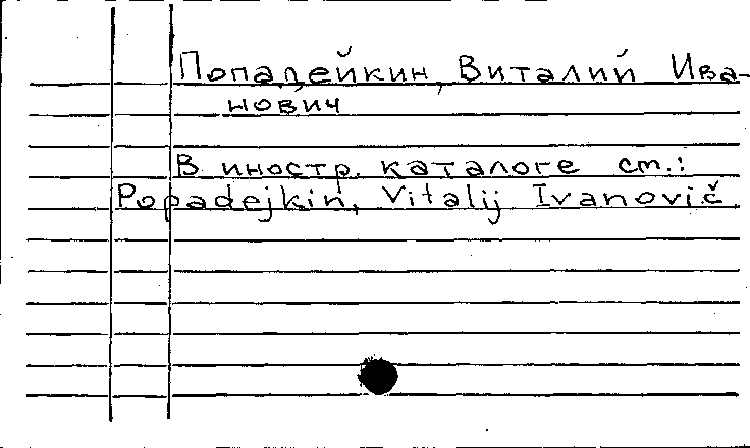 Попадейкин, Виталий Ива-
нович
В иностр. каталоге см.:
Popadejkin, Vitalij Ivanovič